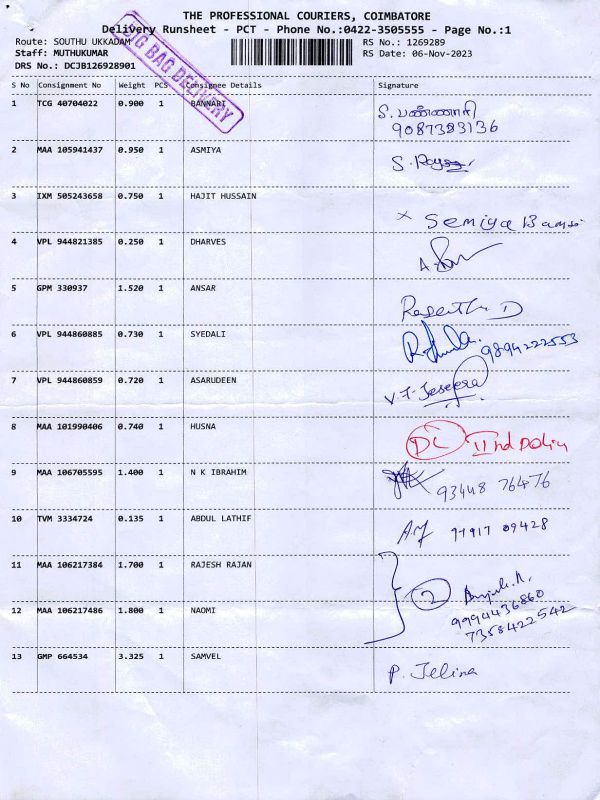 THE PROFESSIONAL COURIERS, COIMBATORE
Delivery Runsheet - PCT - Phone No.:0422-3505555 - Page No.:1
Route: SOUTHU UKKADAM RS No.: 1269289
Staff: MUTHUKUMAR RS Date: 06-Nov-2023
DRS No.: DCJB126928901
BIG BAG DELIVERY
S No Consignment No Weight PCS Consignee Details Signature
1 TCG 40704022 0.900 1 BANNARI S. பண்ணாரி
9087383136
2 MAA 105941437 0.950 1 ASMIYA S.
3 IXM 505243658 0.750 1 HAJIT HUSSAIN x Semiya Banu
4 VPL 944821385 0.250 1 DHARVES
5 GPM 330937 1.520 1 ANSAR D
6 VPL 944860885 0.730 1 SYEDALI 9894222553
7 VPL 944860859 0.720 1 ASARUDEEN V.F.
8 MAA 101990406 0.740 1 HUSNA DL IInd
9 MAA 106705595 1.400 1 N K IBRAHIM 93448 76476
10 TVM 3334724 0.135 1 ABDUL LATHIF 97917 09428
11 MAA 106217384 1.700 1 RAJESH RAJAN 2
9994436860
12 MAA 106217486 1.800 1 NAOMI 7358422542
13 GMP 664534 3.325 1 SAMVEL P. Jelina